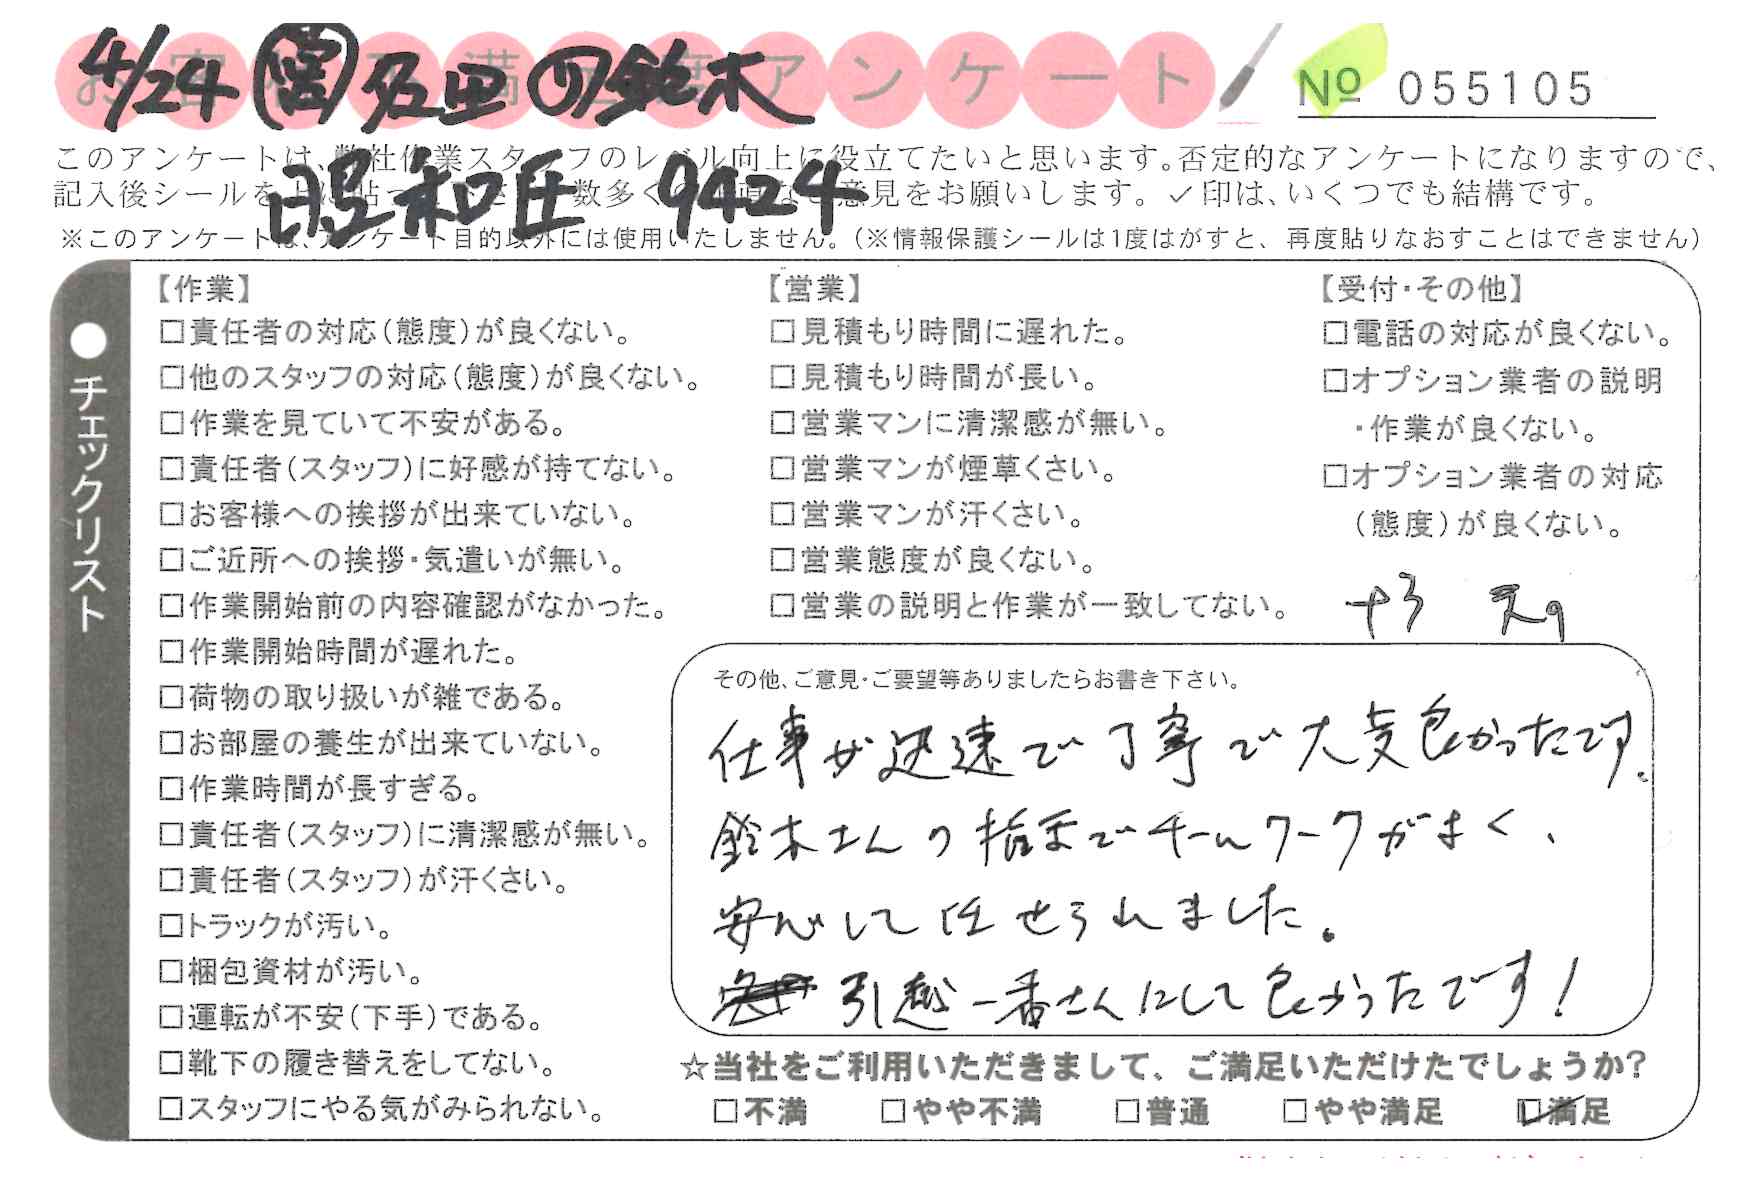 お客様不満足度アンケート
4/24 鈴木
№ 055105
このアンケートは、弊社作業スタッフのレベル向上に役立てたいと思います。否定的なアンケートになりますので、
記入後シールを上に貼って 数多くの 意見をお願いします。✓印は、いくつでも結構です。
昭和 9424
※このアンケートは、アンケート目的以外には使用いたしません。(※情報保護シールは1度はがすと、再度貼りなおすことはできません)
●チェックリスト
【作業】
□責任者の対応(態度)が良くない。
□他のスタッフの対応(態度)が良くない。
□作業を見ていて不安がある。
□責任者(スタッフ)に好感が持てない。
□お客様への挨拶が出来ていない。
□ご近所への挨拶・気遣いが無い。
□作業開始前の内容確認がなかった。
□作業開始時間が遅れた。
□荷物の取り扱いが雑である。
□お部屋の養生が出来ていない。
□作業時間が長すぎる。
□責任者(スタッフ)に清潔感が無い。
□責任者(スタッフ)が汗くさい。
□トラックが汚い。
□梱包資材が汚い。
□運転が不安(下手)である。
□靴下の履き替えをしてない。
□スタッフにやる気がみられない。
【営業】
□見積もり時間に遅れた。
□見積もり時間が長い。
□営業マンに清潔感が無い。
□営業マンが煙草くさい。
□営業マンが汗くさい。
□営業態度が良くない。
□営業の説明と作業が一致してない。
【受付・その他】
□電話の対応が良くない。
□オプション業者の説明
・作業が良くない。
□オプション業者の対応
(態度)が良くない。
その他、ご意見・ご要望等ありましたらお書き下さい。
仕事が迅速で丁寧で大変良かったです。
鈴木さんの指示でチームワークがよく、
安心して任せられました。
引越一番さんにして良かったです!
☆当社をご利用いただきまして、ご満足いただけたでしょうか?
□不満 □やや不満 □普通 □やや満足 ☑満足